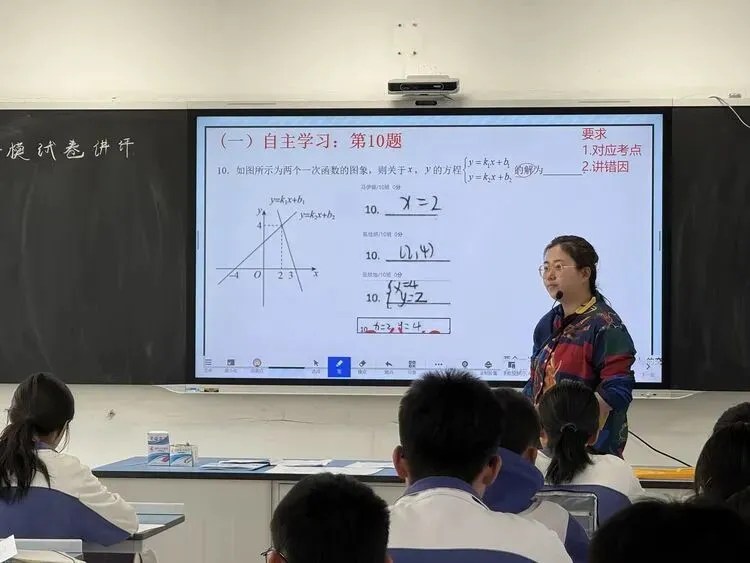 模试卷讲评
(一)自主学习：第10题
要求
1.对应考点
2.讲错因
10. 如图所示为两个一次函数的图象，则关于x，y的方程{y=k₁x+b₁ y=k₂x+b₂的解为______
y=k₁x+b₁
y=k₂x+b₂
y
4
-4 O 2 3 x
10. x=2
10. (2,4)
10. {x=4 y=2
10. x=2, y=4